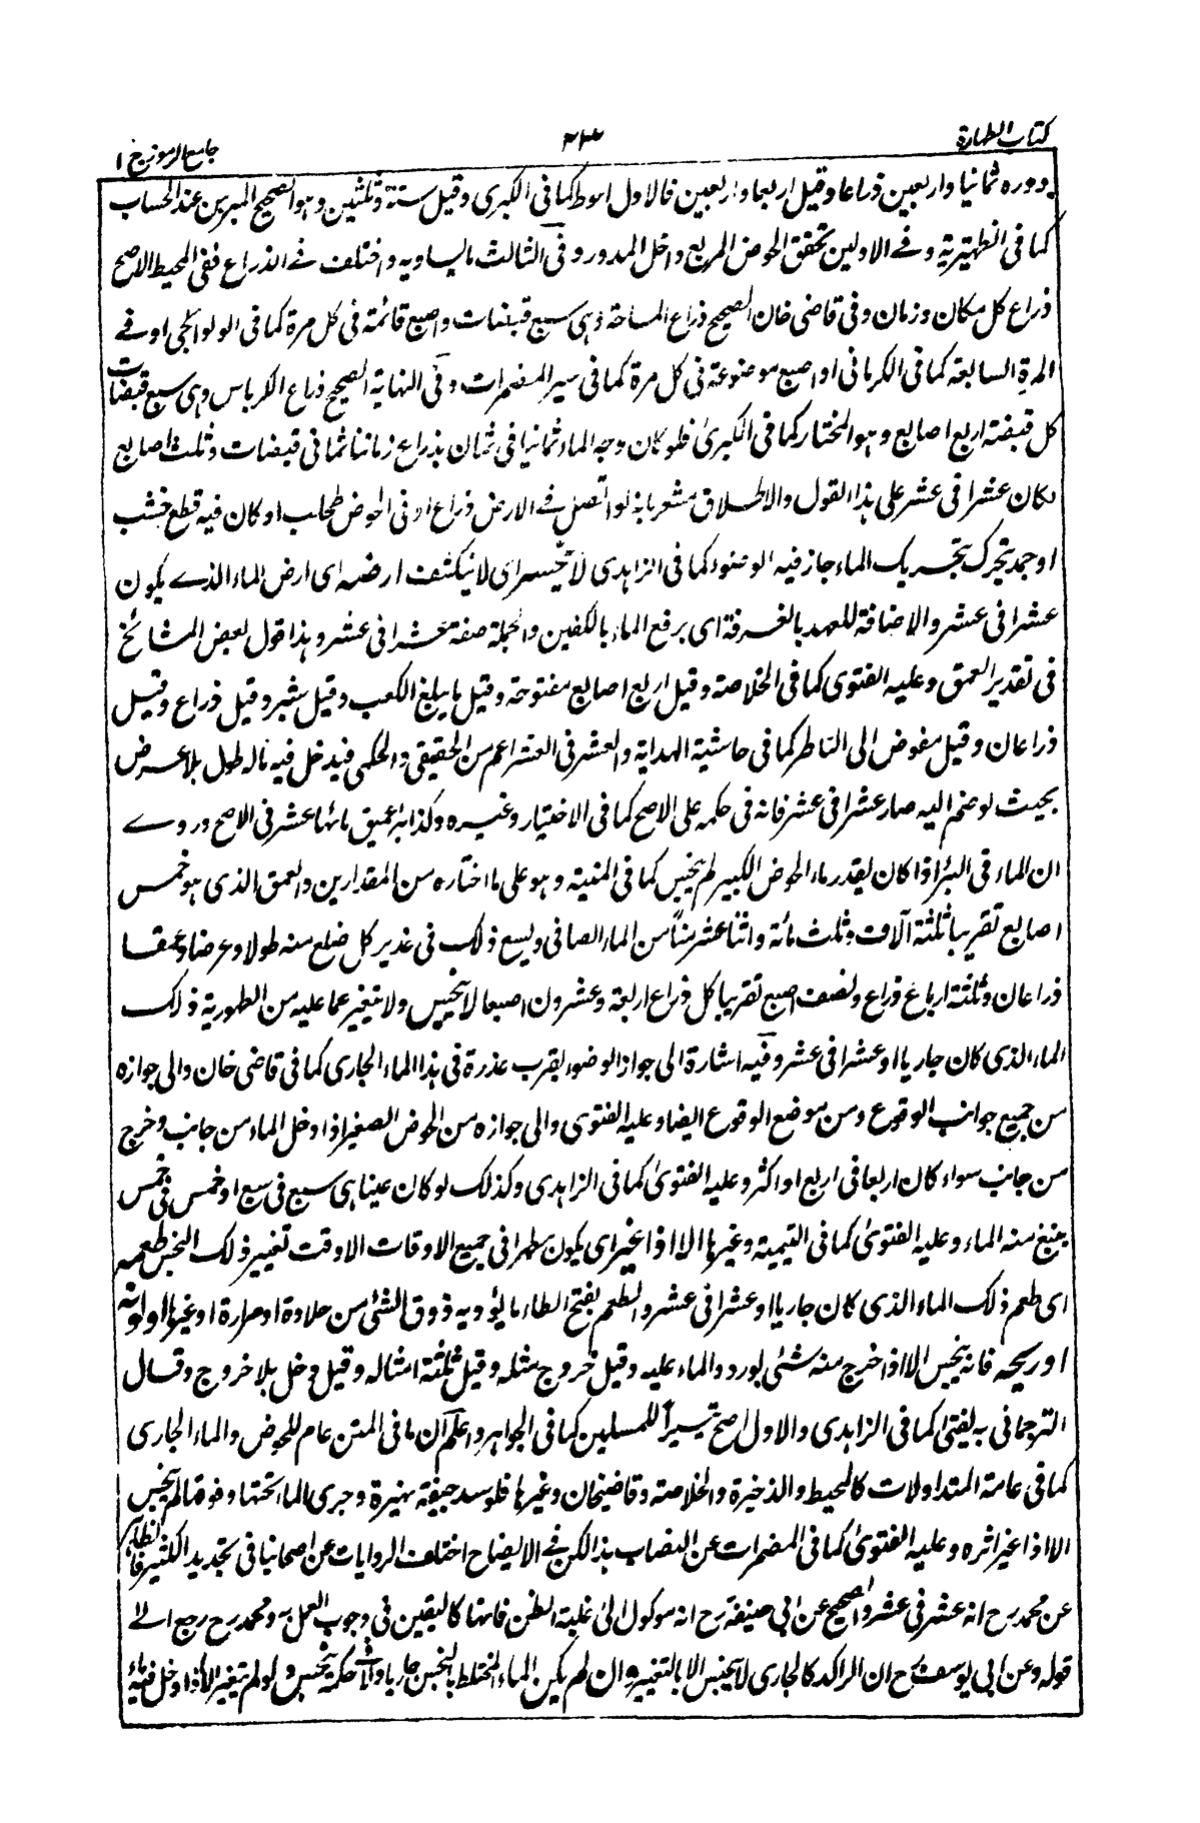 كتاب الطهارة
٢٣
جامع الرموز ج ١
دوره ثمانيا واربعين ذراعا وقيل اربعا واربعين فالاول احوط كما فى الكبرى وقيل ستة وثلثين وهو الصحيح المبرهن عند الحساب
كما فى الظهيرية وفے الاولين تحقق الحوض المربع داخل المدور وفى الثالث مايساويه واختلف فے الذراع ففى المحيط الاصح
ذراع كل مكان وزمان وفى قاضى خان الصحيح ذراع المساحة وهى سبع قبضات واصبع قائمة فى كل مرة كما فى الولوالجى او فے
المرة السابعة كما فى الكرمانى او اصبع موضوعة فى كل مرة كما فى سير المضمرات وفى النهاية الصحيح ذراع الكرباس وهى سبع قبضات
كل قبضة اربع اصابع وهو المختار كما فى الكبرىٰ فلو كان وجه الماء ثمانيا فى ثمان بذراع زماننا ثمانى قبضات وثلث اصابع
لكان عشرا فى عشر على هذا القول والاطلاق مشعر بانه لو اتصل فے الارض ذراع او فى الحوض طحلب او كان فيه قطع خشب
او جمد يتحرك بتحريك الماء جاز فيه الوضوء كما فى الزاهدى لا تنحسر اى لا ينكشف ارضه اى ارض الماء الذے يكون
عشرا فى عشر والاضافة للعهد بالغرفة اى برفع الماء بالكفين والجملة صفة عشرا فى عشر وهذا قول بعض المشائخ
فى تقدير العمق وعليه الفتوى كما فى الخلاصة وقيل اربع اصابع مفتوحة وقيل ما يبلغ الكعب وقيل شبر وقيل ذراع وقيل
ذراعان وقيل مفوض الى الناظر كما فى حاشية الهداية والعشر فى العشر اعم من الحقيقى والحكمى فيدخل فيه ماله طول بلا عرض
بحيث لو ضم اليه صار عشرا فى عشر فانه فى حكمه على الاصح كما فى الاختيار وغيره وكذا بئر عميق ماءها عشر فى الاصح وروے
ان الماء فى البئر اذا كان بقدر ماء الحوض الكبير لم ينجس كما فى المنية وهو على ما اختاره من المقدارين والعمق الذى هو خمس
اصابع تقريبا ثلثة آلاف وثلث مائة واثنا عشر منًّا من الماء الصافى ويسع ذلك فى غدير كل ضلع منه طولا وعرضا وعمقا
ذراعان وثلثة ارباع ذراع ونصف اصبع تقريبا كل ذراع اربعة وعشرون اصبعا لا يتنجس ولا يتغير عما عليه من الطهورية ذلك
الماء الذى كان جاريا او عشرا فى عشر وفيه اشارة الى جواز الوضوء بقرب عذرة فى هذا الماء الجارى كما فى قاضى خان والى جوازه
من جميع جوانب الوقوع ومن موضع الوقوع ايضا وعليه الفتوى والى جوازه من الحوض الصغير اذا دخل الماء من جانب وخرج
من جانب سواء كان اربعا فى اربع او اكثر وعليه الفتوىٰ كما فى الزاهدى وكذلك لو كان عينا هى سبع فى سبع او خمس فى خمس
ينبغ منه الماء وعليه الفتوىٰ كما فى التيمية وغيرها الا اذا غير اى يكون مطهرا فى جميع الاوقات الا وقت تغيير ذلك النجس طعمه
اى طعم ذلك الماء الذى كان جاريا او عشرا فى عشر والطعم بفتح الطاء ما يؤديه ذوق الشئ من حلاوة او مرارة او غيرها او لونه
او ريحه فانه ينجس الا اذا خرج منه شئى بورود الماء عليه وقيل خروج مثله وقيل ثلثة امثاله وقيل دخل بلا خروج وقال
الترجمانى به يفتى كما فى الزاهدى والاول اصح تيسيرا للمسلمين كما فى الجواهر واعلم ان ما فى المتن عام للحوض والماء الجارى
كما فى عامة المتداولات كالمحيط والذخيرة والخلاصة وقاضيخان وغيرها فلو سد جيفة نهيرة وجرى الماء تحتها وفوقها لم ينجس
الا اذا غير اثره وعليه الفتوىٰ كما فى المضمرات عن النصاب بذا لكن فے الايضاح اختلف الروايات عن اصحابنا فى تحديد الكثير فالظاهر
عن محمد رح انه عشر فى عشر والصحيح عن ابى حنيفة رح انه موكول الىٰ غلبة الظن فانها كاليقين فى وجوب العمل به ومحمد رح رجع الے
قوله وعن ابى يوسف رح ان الراكد كالجارى لا يتنجس الا بالتغير وان لم يكن الماء المختلط بالنجس جاريا حكمه ينجس ولو لم يتغير الا اذا دخل فيه